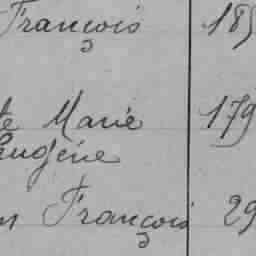 François 185
te Marie 179
Eugénie
François 29